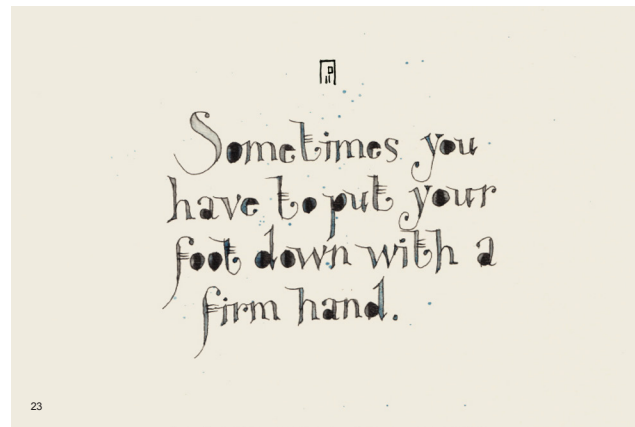 Sometimes you
have to put your
foot down with a
firm hand.
23